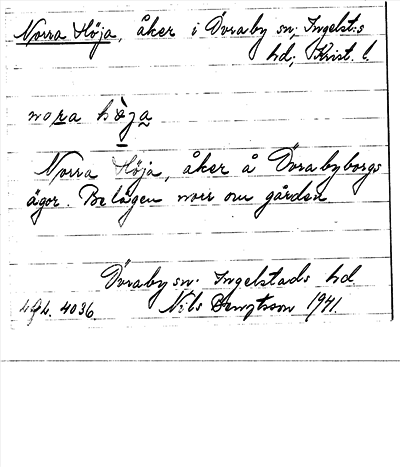 Norra Höja, åker i Övraby sn; Ingelst:s
hd; Krist. l.
nora höja
Norra Höja, åker å Övrabyborgs
ägor. Belägen norr om gården
Övraby sn. Ingelstads hd.
4036 Nils Bengtsson 1941.